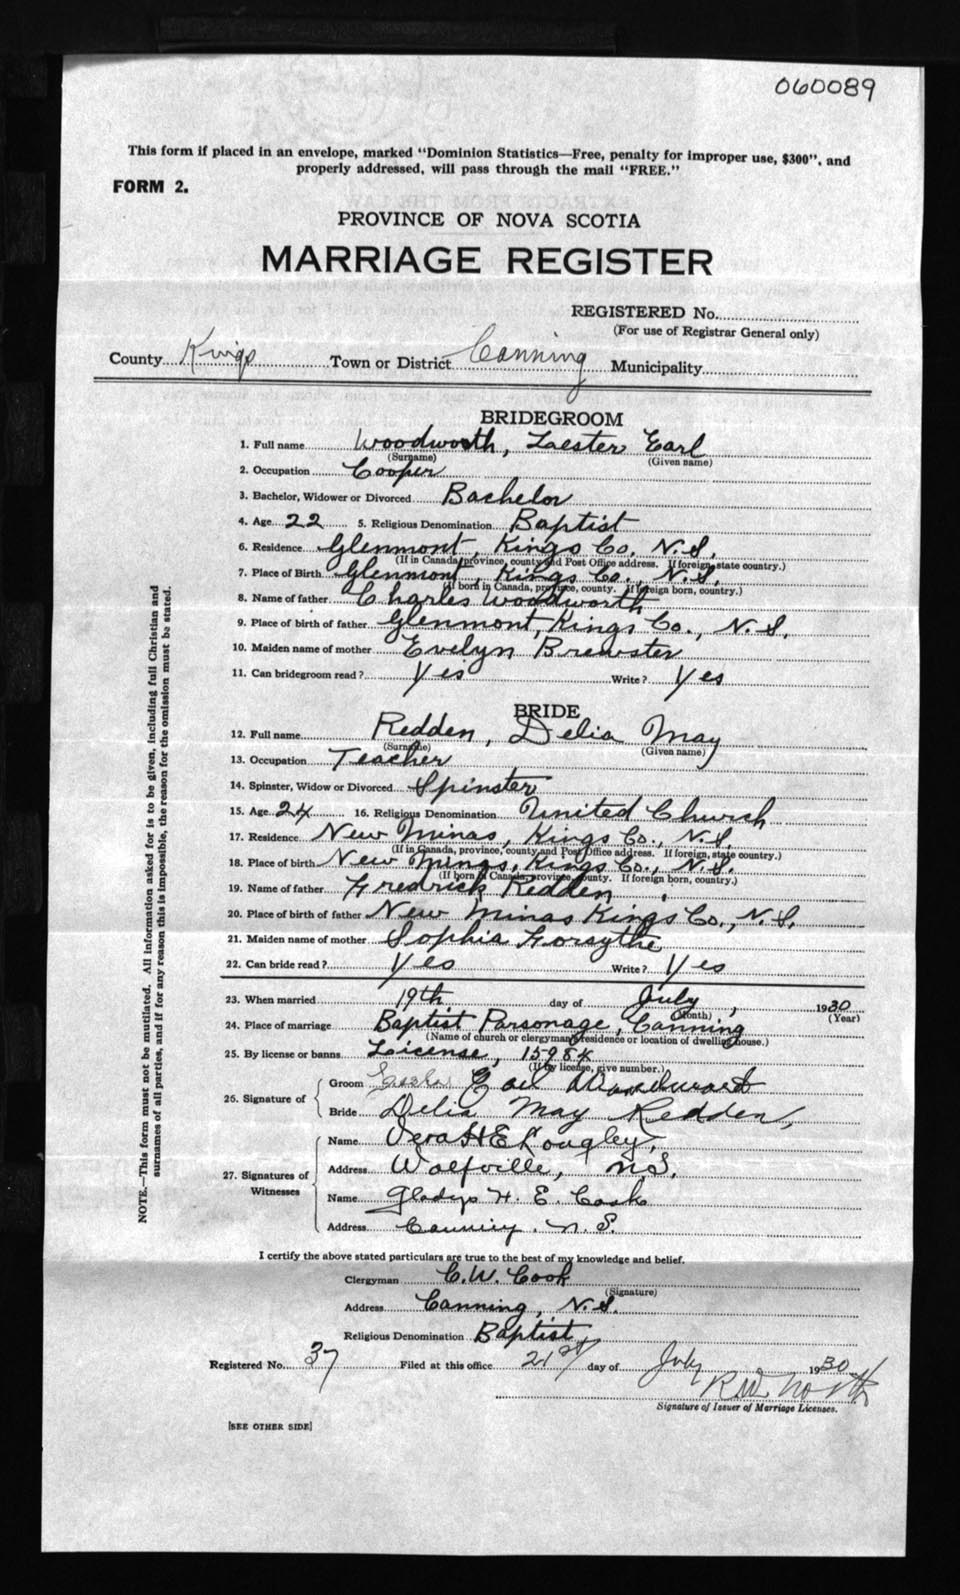 060089
This form if placed in an envelope, marked "Dominion Statistics—Free, penalty for improper use, $300", and
properly addressed, will pass through the mail "FREE."
FORM 2.
PROVINCE OF NOVA SCOTIA
MARRIAGE REGISTER
REGISTERED No.
(For use of Registrar General only)
County Kings Town or District Canning Municipality
BRIDEGROOM
1. Full name Woodworth, Lester Earl
(Surname) (Given name)
2. Occupation Cooper
3. Bachelor, Widower or Divorced Bachelor
4. Age 22 5. Religious Denomination Baptist
6. Residence Glenmont, Kings Co. N.S.
(If in Canada, province, county and Post Office address. If foreign, state country.)
7. Place of Birth Glenmont, Kings Co., N.S.
(If born in Canada, province, county. If foreign born, country.)
8. Name of father Charles Woodworth
9. Place of birth of father Glenmont, Kings Co., N.S.
10. Maiden name of mother Evelyn Brewster
11. Can bridegroom read? Yes Write? Yes
BRIDE
12. Full name Redden, Delia May
(Surname) (Given name)
13. Occupation Teacher
14. Spinster, Widow or Divorced Spinster
15. Age 24 16. Religious Denomination United Church
17. Residence New Minas, Kings Co., N.S.
(If in Canada, province, county and Post Office address. If foreign, state country.)
18. Place of birth New Minas, Kings Co., N.S.
(If born in Canada, province, county. If foreign born, country.)
19. Name of father Fredrick Redden
20. Place of birth of father New Minas Kings Co., N.S.
21. Maiden name of mother Sophia Forsythe
22. Can bride read? Yes Write? Yes
23. When married 19th day of July, 1930
(Month) (Year)
24. Place of marriage Baptist Parsonage, Canning
(Name of church or clergyman's residence or location of dwelling house.)
25. By license or banns License, 15984
(If by license, give number.)
26. Signature of Groom Earl Woodword
Bride Delia May Redden,
27. Signatures of Witnesses Name Vera H E Longley,
Address Wolfville, N.S.
Name Gladys H. E. Cook
Address Canning. N.S.
I certify the above stated particulars are true to the best of my knowledge and belief.
Clergyman C.W. Cook
(Signature)
Address Canning, N.S.
Religious Denomination Baptist
Registered No. 37 Filed at this office 21st day of July 1930
Signature of Issuer of Marriage Licenses.
[SEE OTHER SIDE]
NOTE.—This form must not be mutilated. All information asked for is to be given, including full Christian and
surnames of all parties, and if for any reason this is impossible, the reason for the omission must be stated.